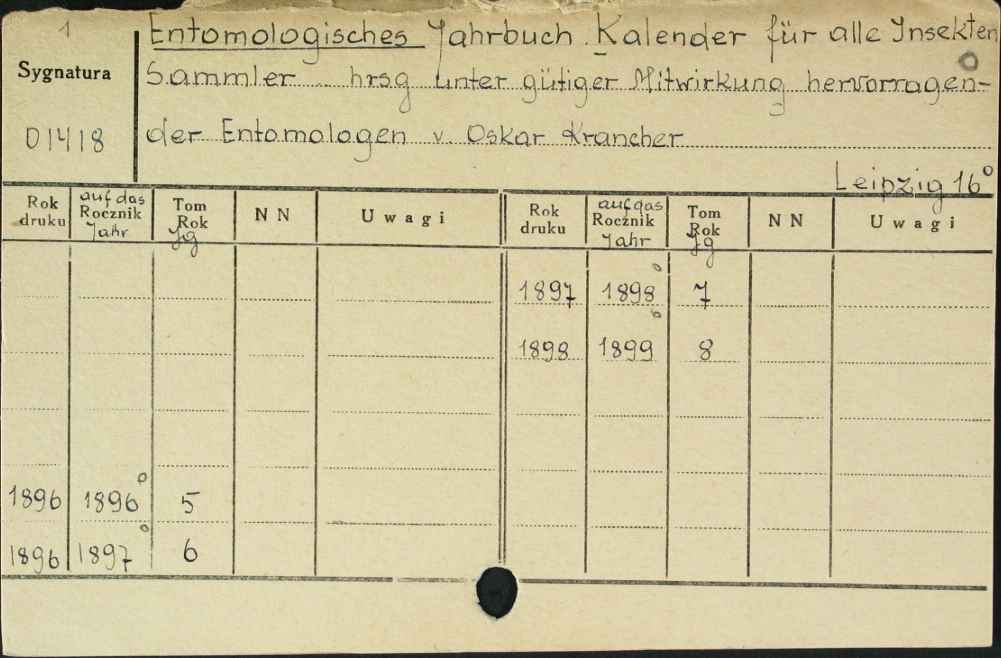 1
Entomologisches Jahrbuch. Kalender für alle Insekten
Sygnatura
Sammler... hrsg unter gütiger Mitwirkung hervorragen-
01418
der Entomologen v. Oskar Krancher
Leipzig 16°
Rok druku auf das Rocznik Jahr Tom Rok Jg NN Uwagi Rok druku auf das Rocznik Jahr Tom Rok Jg NN Uwagi
1897 1898° 7
1898 1899° 8
1896 1896° 5
1896 1897° 6